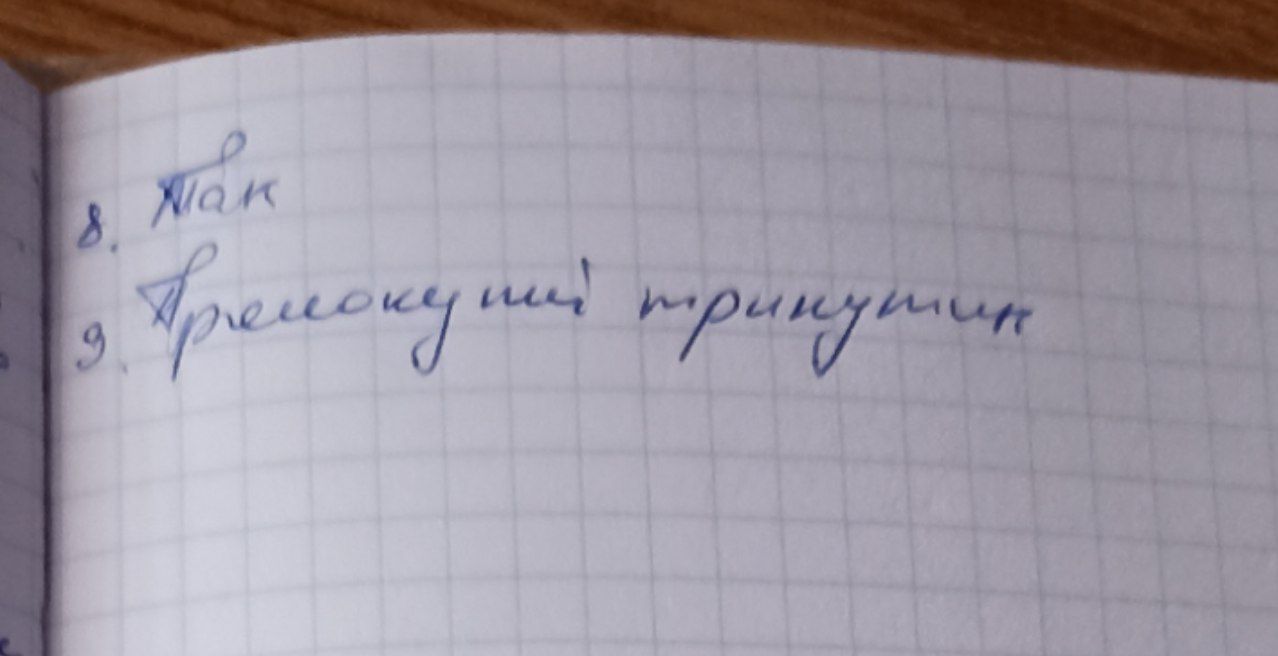 8. Так
9. Премокутні трикутник